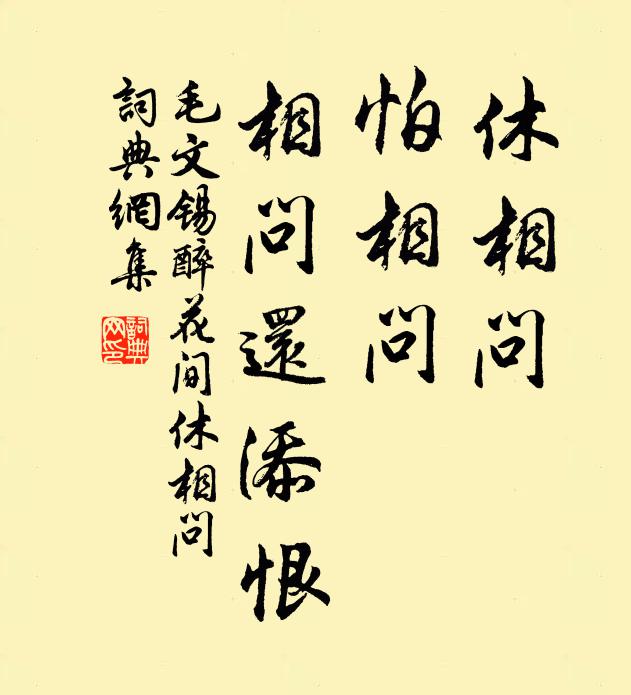 休相問
怕相問
相問還添恨
毛文錫醉花间休相問
詞典網集
詞典网印